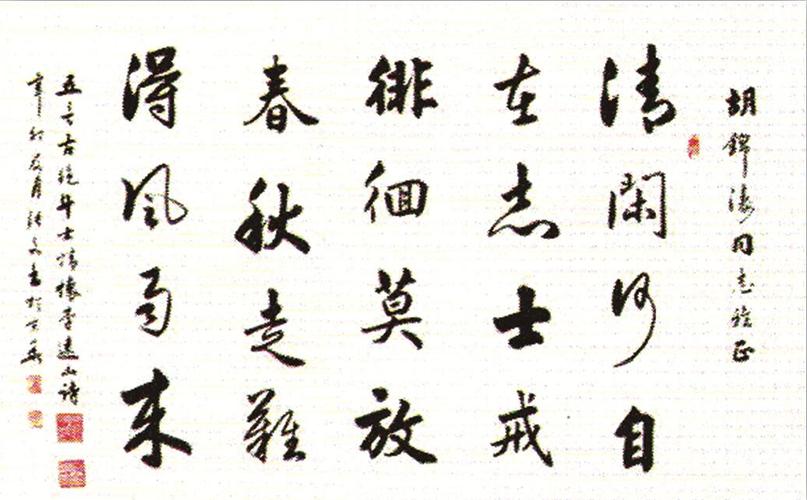 胡錦濤同志雅正
清閑何自
在志士戒
徘徊莫放
春秋走難
得風雨来
五言古绝斗士情懷李山诗
辛卯月书於京華